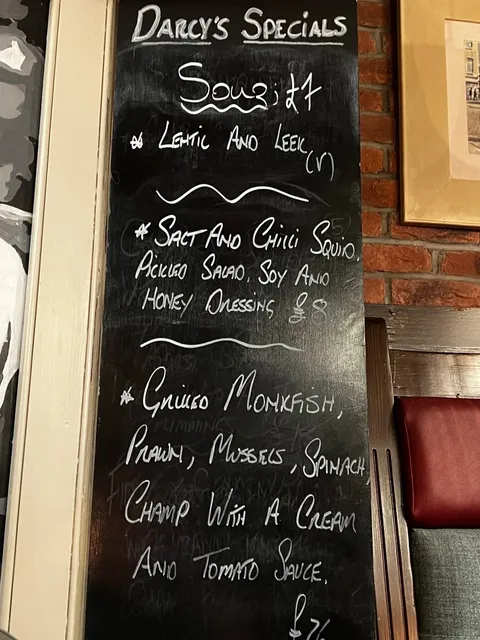 DARCY'S SPECIALS
SOUP; £7
* LENTIL AND LEEK
(V)
* SALT AND CHILLI SQUID,
PICKLED SALAD, SOY AND
HONEY DRESSING £8
* GRILLED MONKFISH,
PRAWN, MUSSELS, SPINACH,
CHAMP WITH A CREAM
AND TOMATO SAUCE.